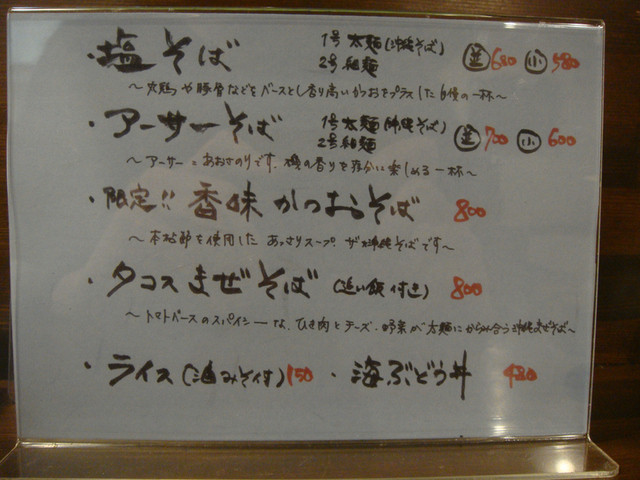 ・塩そば 1号 太麺(沖縄そば) 並680 小580
2号 細麺
～丸鶏や豚骨などをベースとし香り高いかつおをプラスした自慢の一杯～
・アーサーそば 1号 太麺(沖縄そば) 並700 小600
2号 細麺
～アーサー＝あおさのりです。磯の香りを存分に楽しめる一杯～
・限定!! 香味かつおそば 800
～本枯節を使用したあっさりスープ。ザ・沖縄そばです～
・タコスまぜそば (追い飯付き) 800
～トマトベースのスパイシーな、ひき肉とチーズ・野菜が太麺にからみ合う沖縄まぜそば～
・ライス(油みそ付) 150 ・海ぶどう丼 480